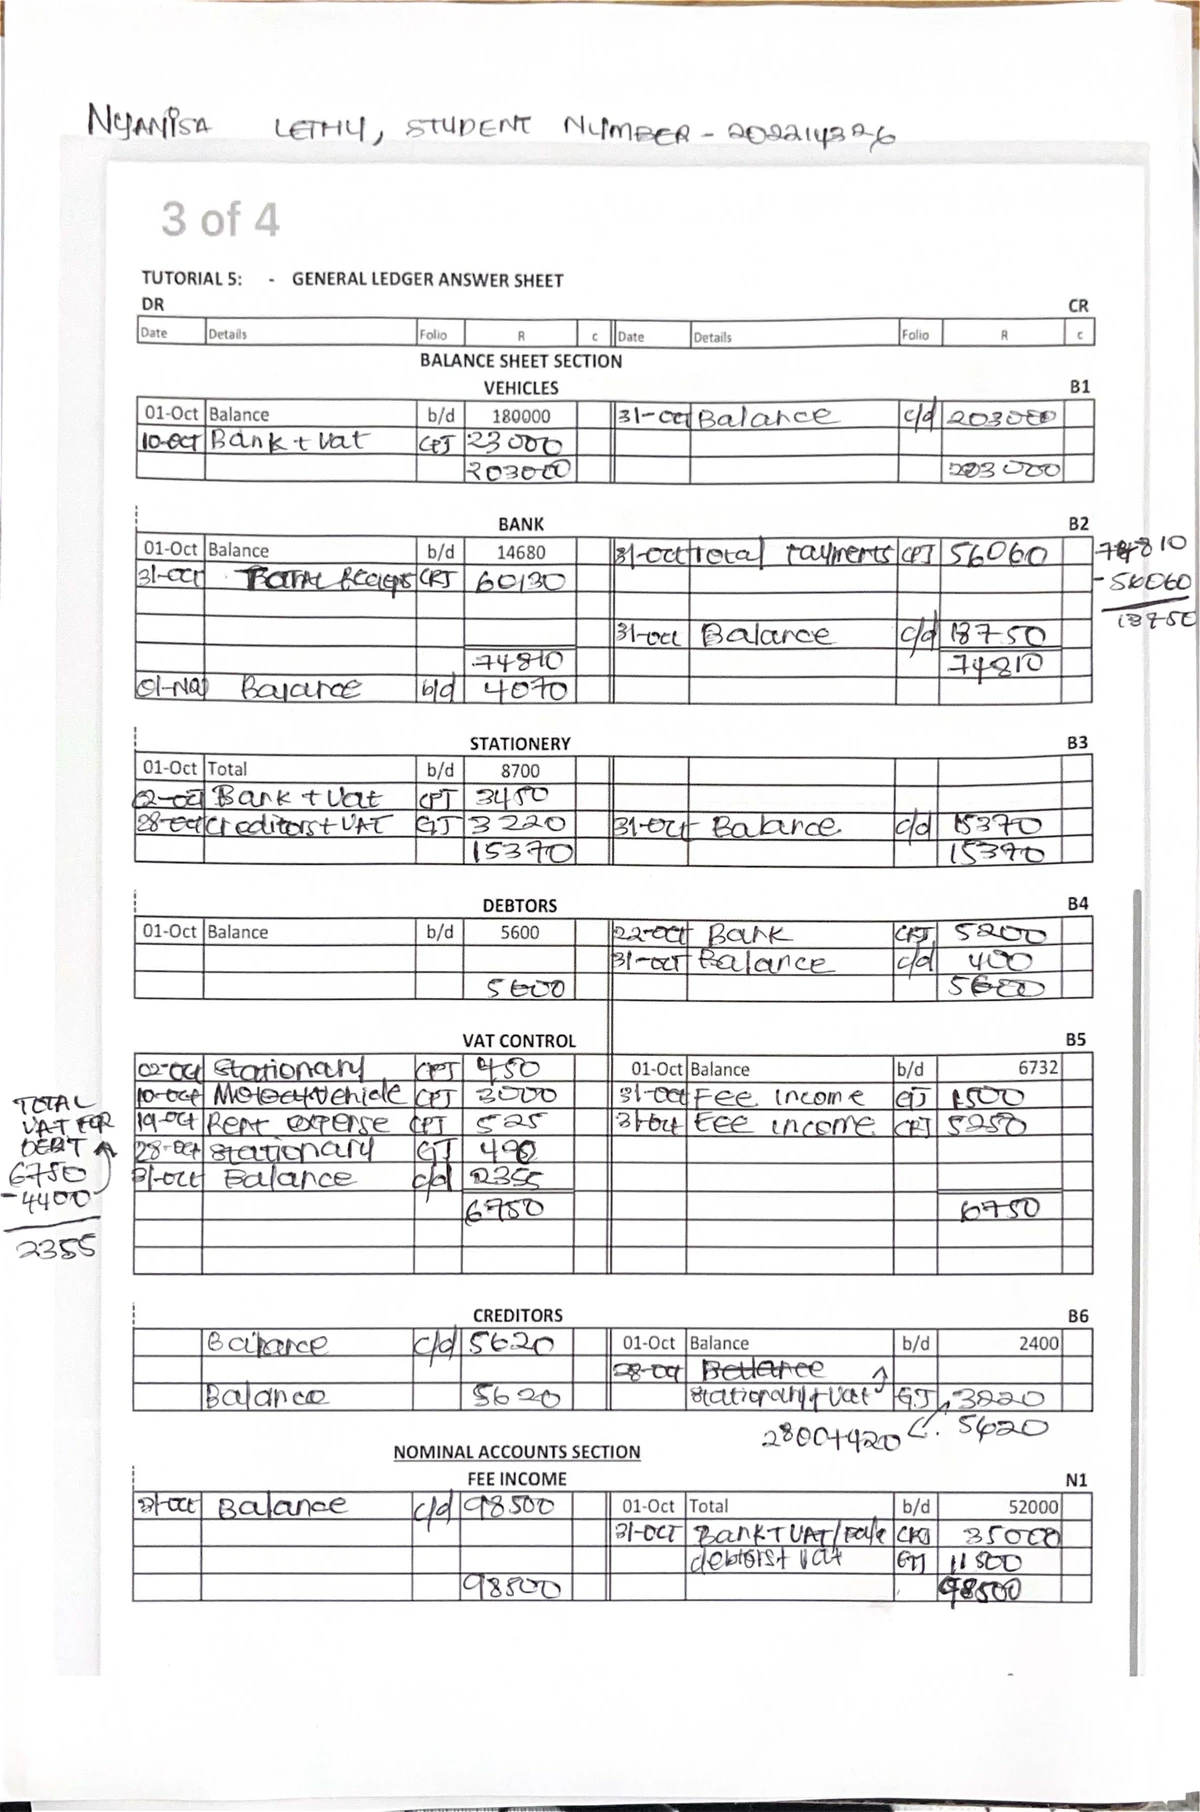 NYANISA LETHU, STUDENT NUMBER - 202214326
3 of 4
TUTORIAL 5: - GENERAL LEDGER ANSWER SHEET
DR CR
Date Details Folio R c Date Details Folio R c
BALANCE SHEET SECTION
VEHICLES B1
01-Oct Balance b/d 180000 31-oct Balance c/d 203000
10-oct Bank + Vat CPJ 23000
203000 203000
BANK B2
01-Oct Balance b/d 14680 31-oct Total Payments CPJ 56060 74810
31-oct TOTAL Receipts CRJ 60130 - 56060
31-oct Balance c/d 18750 18750
74810 74810
01-Nov Balance b/d 4070
STATIONERY B3
01-Oct Total b/d 8700
02-oct Bank + Vat CPJ 3450
28-oct creditors + VAT GJ 3220 31-oct Balance c/d 15370
15370 15370
DEBTORS B4
01-Oct Balance b/d 5600 22-oct Bank CRJ 5200
31-oct Balance c/d 400
5600 5600
VAT CONTROL B5
02-oct Stationary CPJ 450 01-Oct Balance b/d 6732
10-oct Motor Vehicle CPJ 3000 31-oct Fee income GJ 1500
19-oct Rent expense CPJ 525 31-oct Fee income CRJ 5250
28-oct Stationary GJ 420
31-oct Balance c/d 2355
6750 6750
TOTAL
VAT FOR
DEBIT
6750
-4400
2355
CREDITORS B6
Balance c/d 5620 01-Oct Balance b/d 2400
28-oct Balance
Balance 5620 stationary + Vat GJ 3220
2800+420 5620
NOMINAL ACCOUNTS SECTION
FEE INCOME N1
31-oct Balance c/d 98500 01-Oct Total b/d 52000
31-OCT Bank + VAT/ CRJ 35000
debtors + Vat GJ 11500
98500 98500